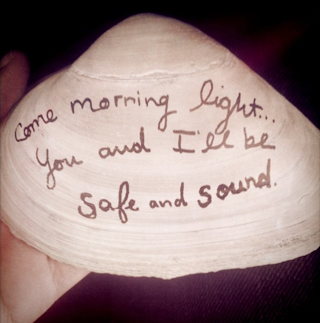 Come morning light...
You and I'll be
safe and sound.